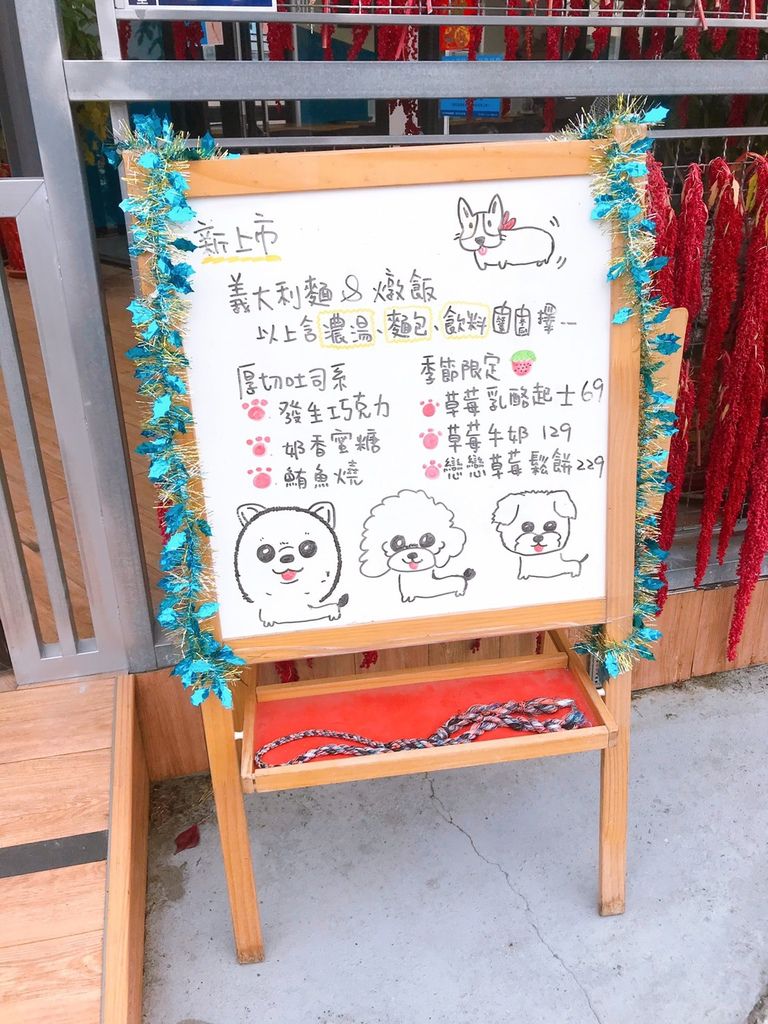 新上市
義大利麵 & 燉飯
以上含濃湯、麵包、飲料
厚切吐司系
發生巧克力
奶香蜜糖
鮪魚燒
季節限定
草莓乳酪起士 69
草莓牛奶 129
戀戀草莓鬆餅 229